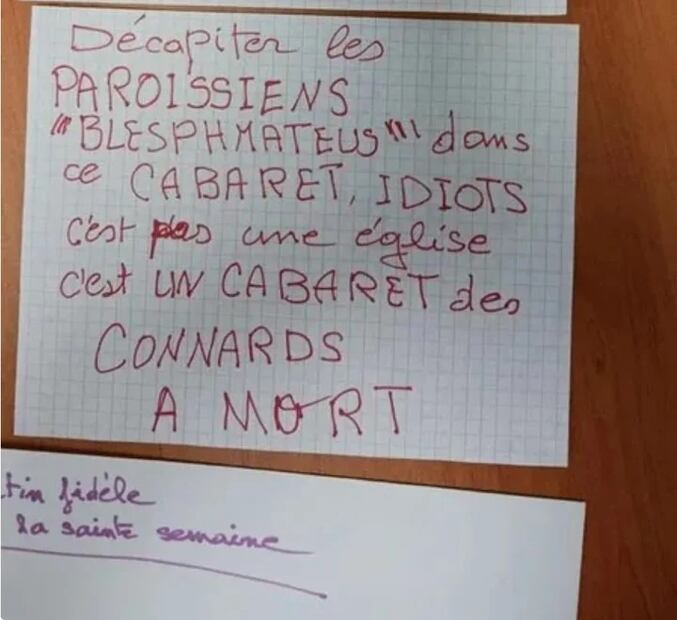 Décapiter les
PAROISSIENS
"'BLESPHMATEUS"'" dans
ce CABARET, IDIOTS
c'est pas une église
c'est UN CABARET des
CONNARDS
A MORT
fidèle
la sainte semaine